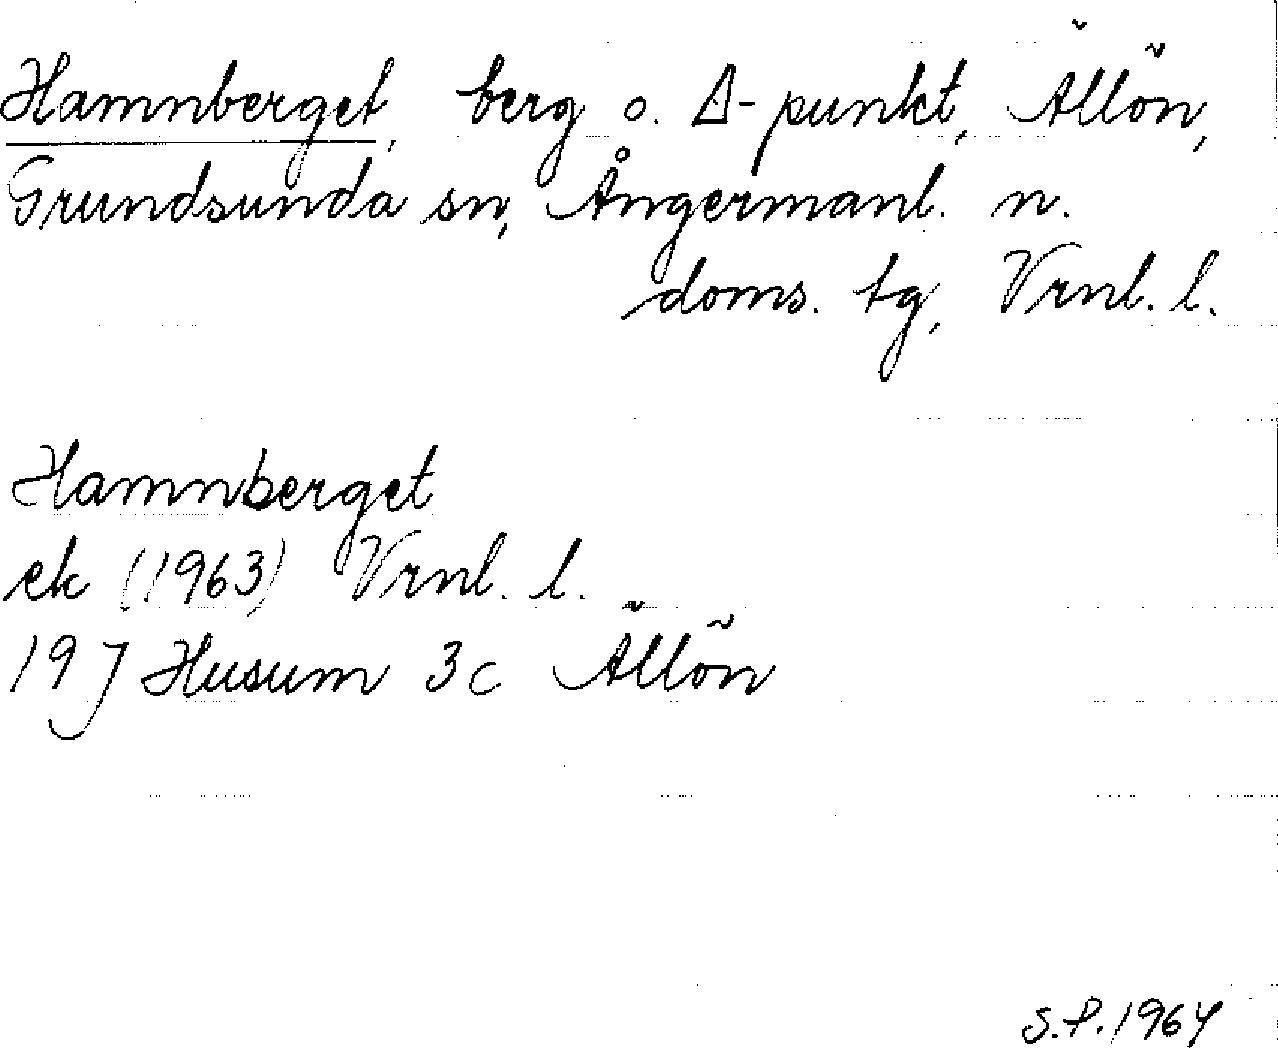 Hamnberget, berg o. Δ-punkt, Ällön,
Grundsunda sn, Ångermanl. n.
doms. tg, Vrnl. l.
Hamnberget
ek (1963) Vrnl. l.
19 J Husum 3c Ällön
S.P. 1964